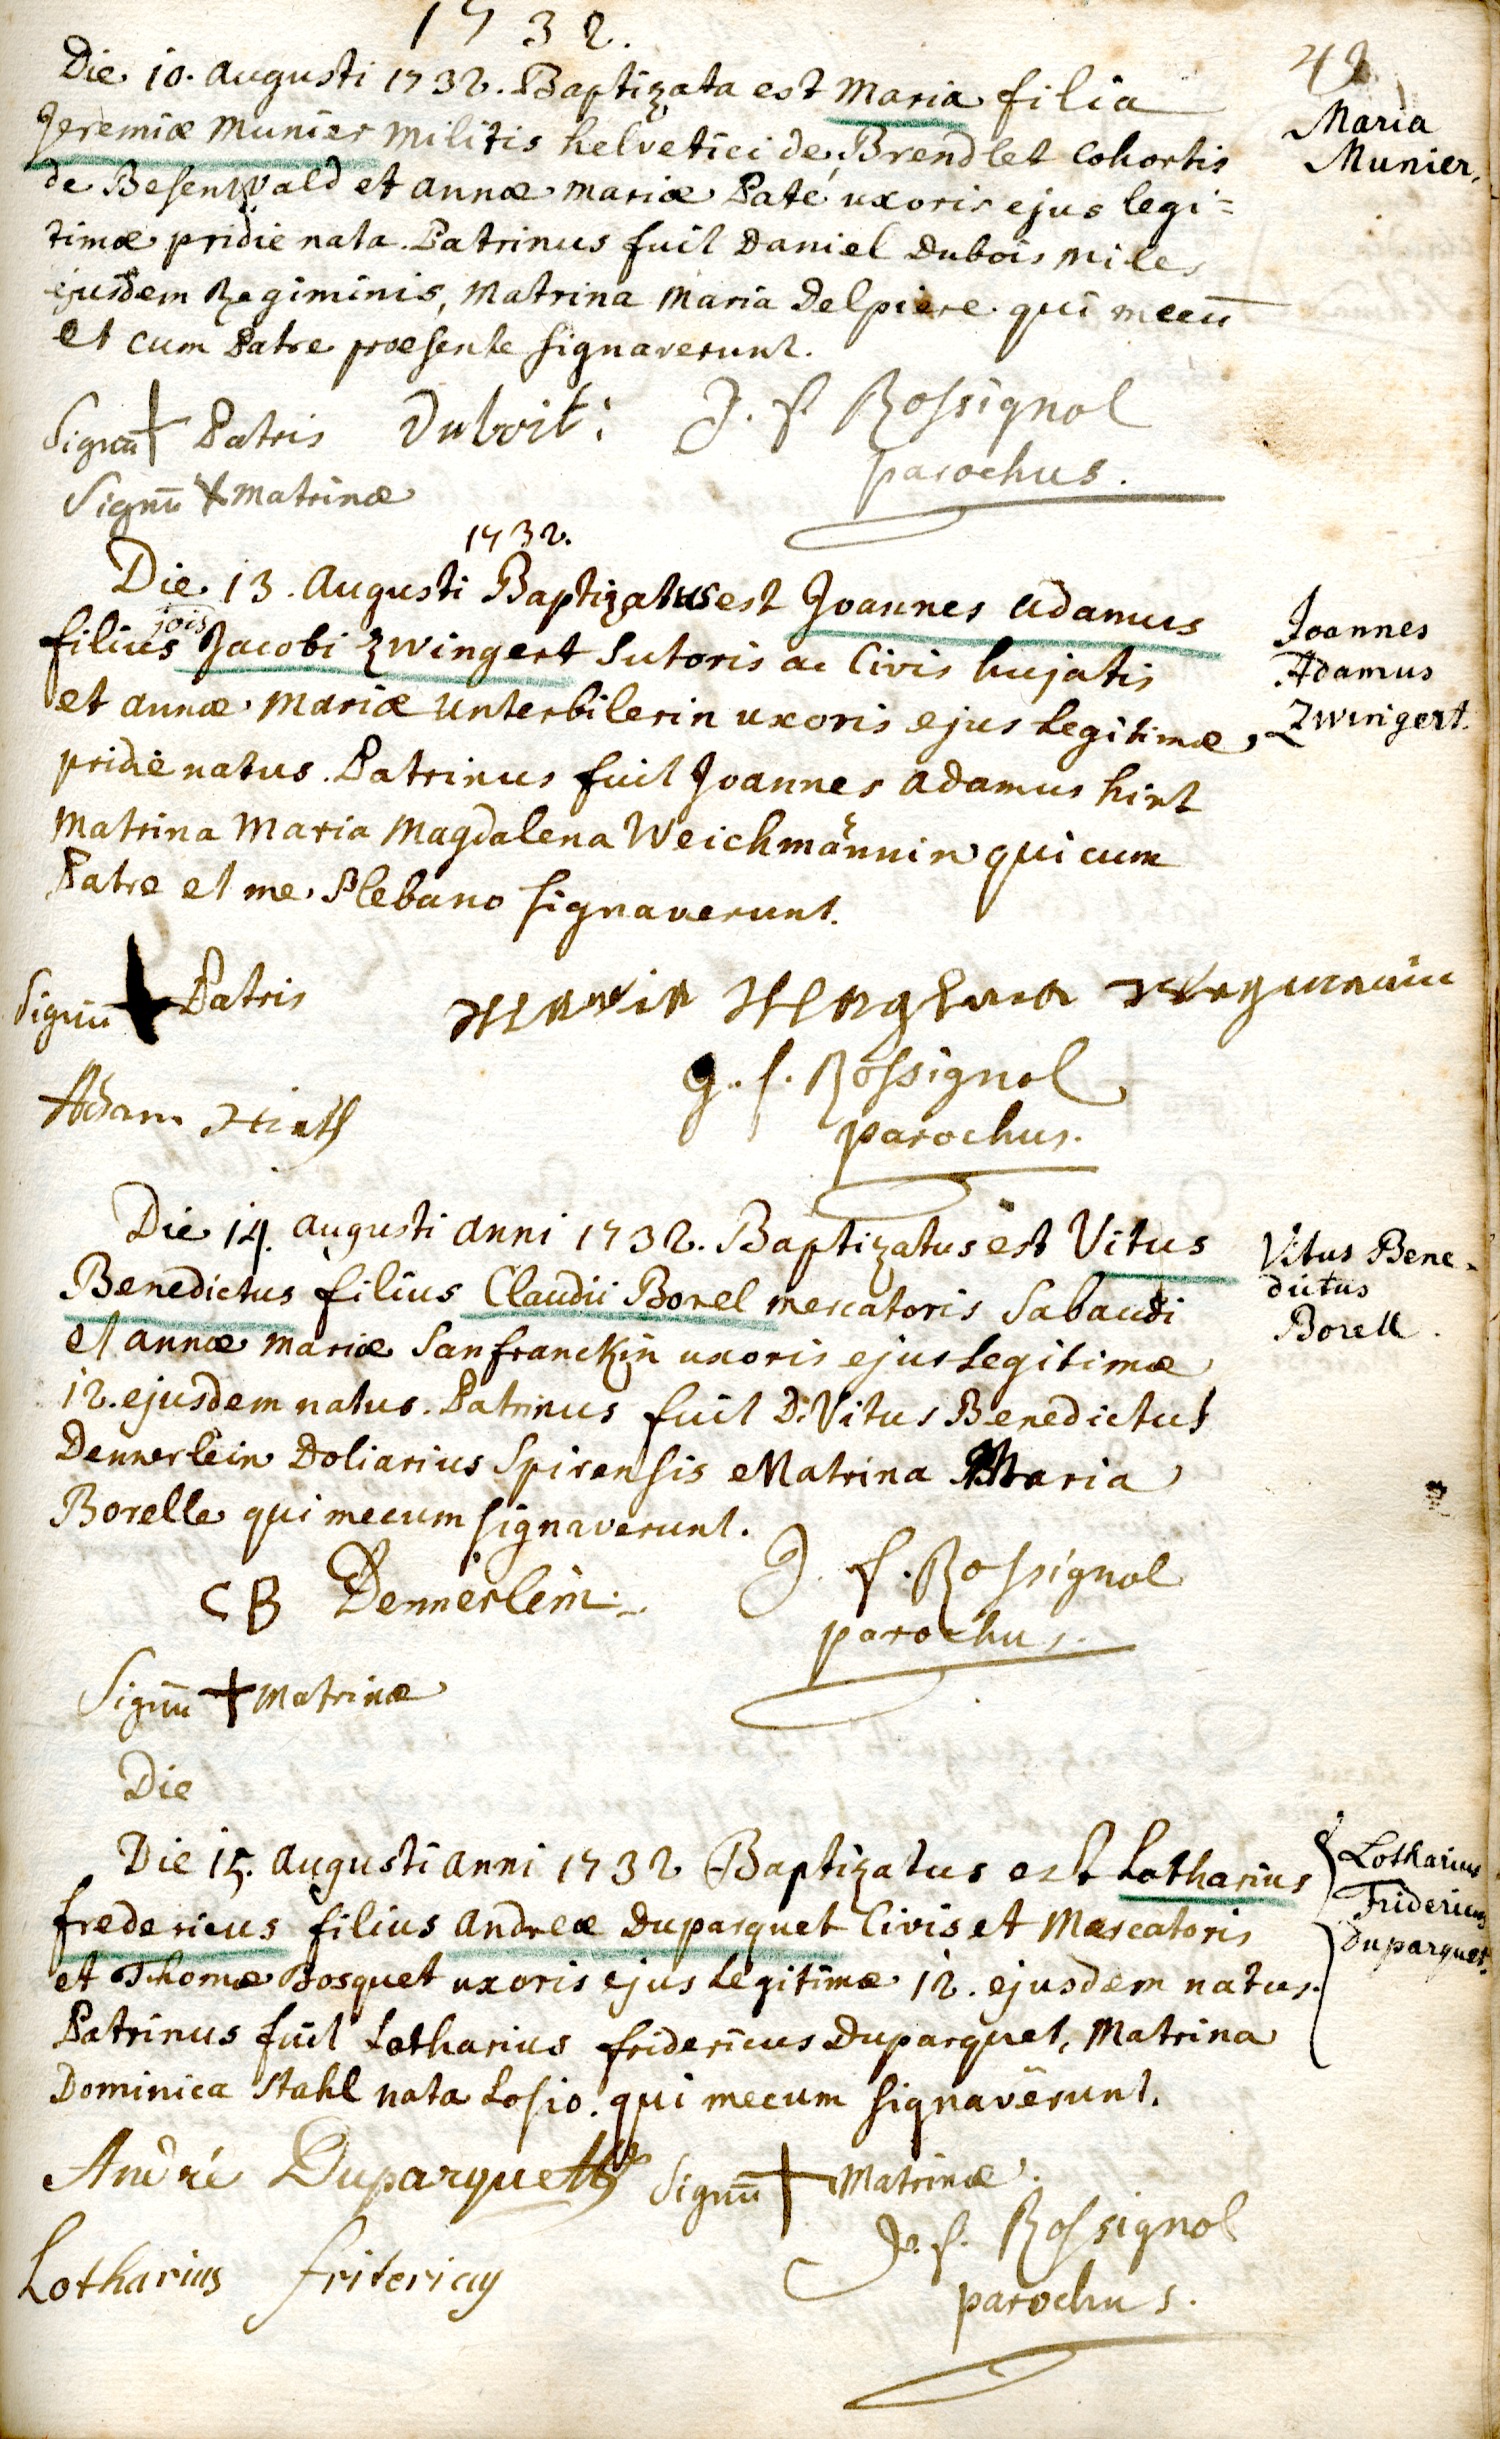 1732.
Die 10. Augusti 1732. Baptizata est Maria filia
Jeremiæ Munier Militis helvetici de Brendlet Cohortis
de Besenwald et annæ Mariæ Paté uxoris ejus legi=
timæ pridie nata. Patrinus fuit Daniel Dubois Miles
ejusdem Regiminis, Matrina Maria Delpiere qui mecū
et cum Patre præsente signaverunt.
Maria
Munier.
Signū + Patris Duboit: J. f Rossignol
parochus.
Signū + Matrinæ
1732.
Die 13. Augusti Baptizatus est Joannes Adamus
jois
filius Jacobi Zwingert Sutoris ac Civis hujatis
et annæ Mariæ Unterbilerin uxoris ejus Legitimæ,
pridie natus. Patrinus fuit Joannes Adamus hirt
Matrina Maria Magdalena Weichmännin qui cum
Patre et me Plebano signaverunt.
Joannes
Adamus
Zwingert.
Signū + Patris
Maria
J. f. Rossignol
Adam Hirth
parochus.
Die 14. Augusti anni 1732. Baptizatus est Vitus
Benedictus filius Claudii Borel mercatoris Sabaudi
et annæ Mariæ Sanfranckin uxoris ejus Legitimæ
12. ejusdem natus. Patrinus fuit D. Vitus Benedictus
Dennerlein Doliarius Spirensis Matrina Maria
Borelle qui mecum signaverunt.
Vitus Bene-
dictus
Borell.
CB Dennerlein. J. f. Rossignol
parochus.
Signū + Matrinæ
Die
Die 15. Augusti anni 1732 Baptizatus est Lotharius
fredericus filius andreæ Duparquet Civis et Mercatoris
et Thomæ Bosquet uxoris ejus Legitimæ 12. ejusdem natus.
Patrinus fuit Lotharius fridericus Duparquet, Matrina
Dominica Stahl nata Losio. qui mecum signaverunt.
Lotharius
Fridericus
Duparquet.
André Duparquett Signū + Matrinæ.
J. f. Rossignol
Lotharius
parochus.